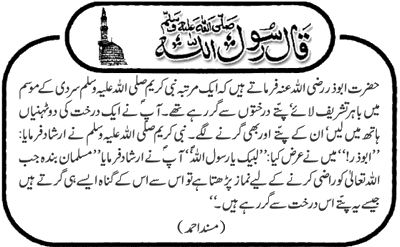 قال رسول اللہ صلی اللہ علیہ وسلم
حضرت ابوذر رضی اللہ عنہ فرماتے ہیں کہ ایک مرتبہ نبی کریم صلی اللہ علیہ وسلم سردی کے موسم
میں باہر تشریف لائے‘ پتے درختوں سے گر رہے تھے۔ آپؐ نے ایک درخت کی دو ٹہنیاں
ہاتھ میں لیں‘ ان کے پتے اور بھی گرنے لگے۔ نبی کریم صلی اللہ علیہ وسلم نے ارشاد فرمایا:
’’ابوذر!‘‘ میں نے عرض کیا: ’’لبیک یا رسول اللہ‘‘، آپؐ نے ارشاد فرمایا ’’مسلمان بندہ جب
اللہ تعالیٰ کو راضی کرنے کے لیے نماز پڑھتا ہے تو اس سے اس کے گناہ ایسے ہی گرتے ہیں
جیسے یہ پتے اس درخت سے گر رہے ہیں۔‘‘
(مسند احمد)